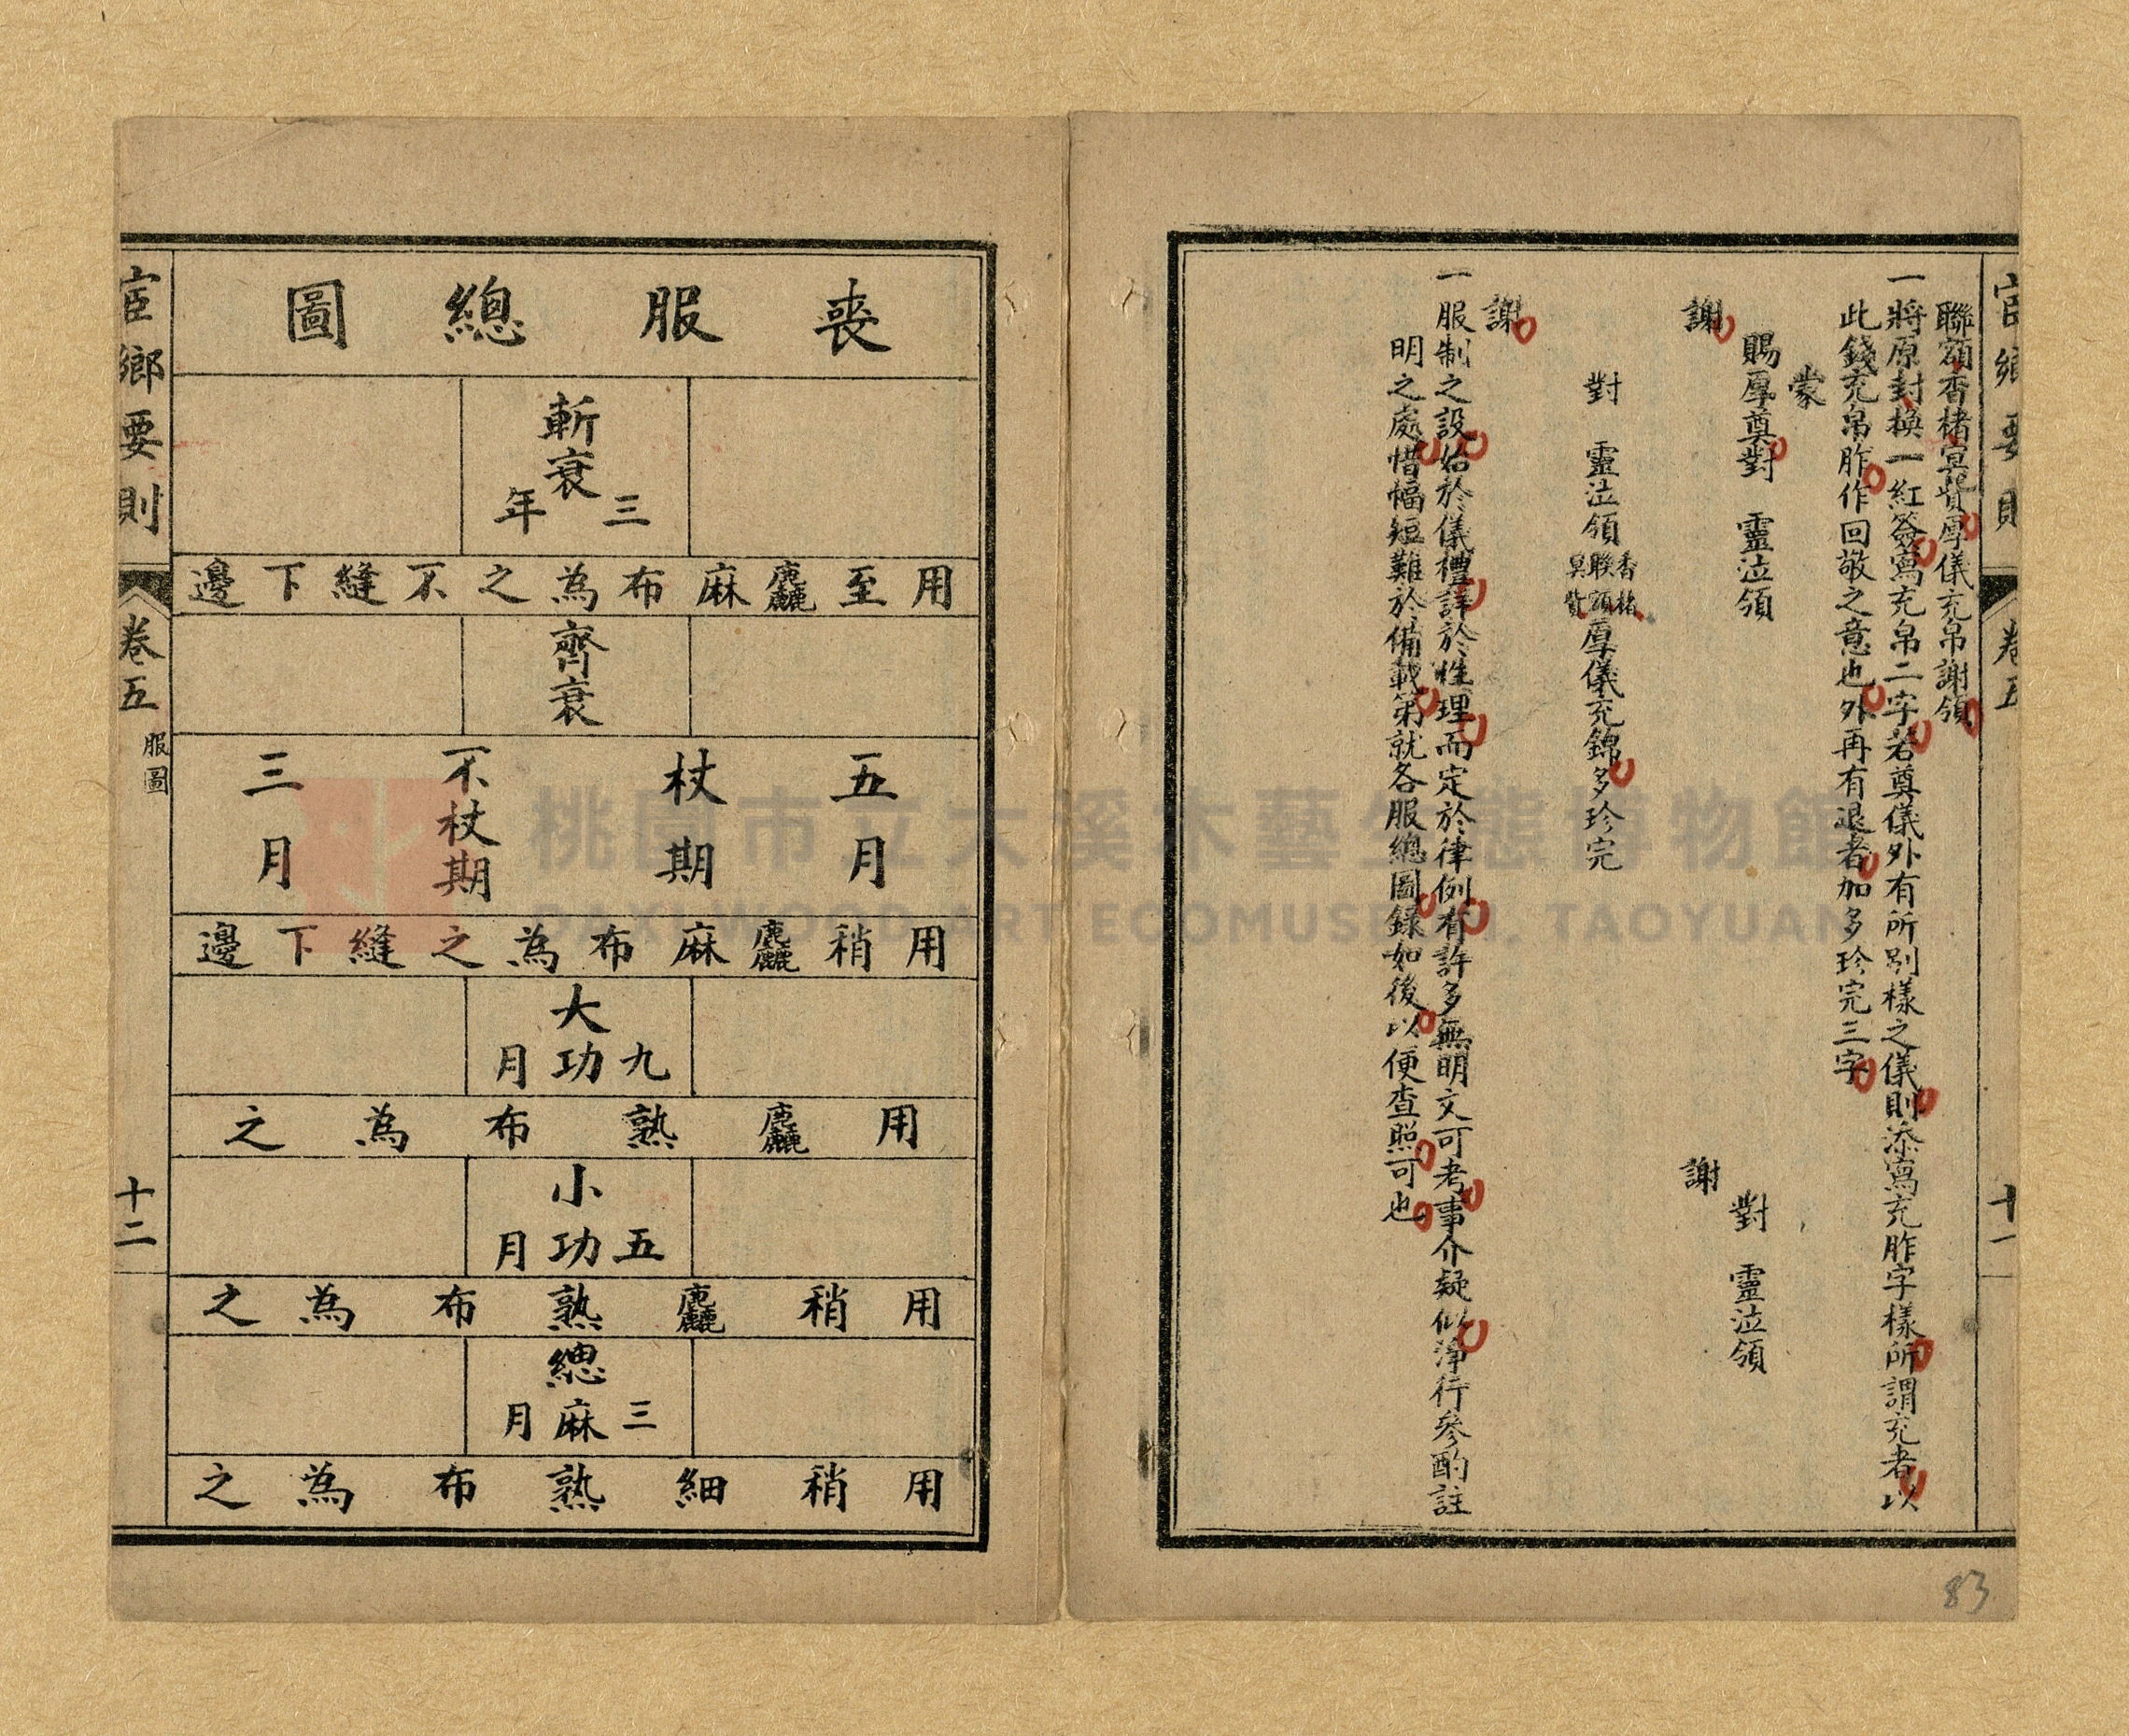 宦鄉要則 卷五 十一
聯額香楮冥貲厚儀充帛謝領
一將原封換一紅簽寫充帛二字若奠儀外有所別樣之儀則添寫充胙字樣所謂充者以
此錢充帛胙作回敬之意也外再有退者加多珍完三字
蒙
賜厚奠對 靈泣領
謝
對 靈泣領
謝
對 靈泣領香楮聯額冥貲厚儀充錦多珍完
謝
一服制之設始於儀禮詳於性理而定於律例有許多無明文可考事介疑似淨行參酌註
明之處惜幅短難於備載第就各服總圖錄如後以便查照可也
83
喪服總圖
斬衰三年
用至麤麻布為之不縫下邊
齊衰
五月
杖期
不杖期
三月
用稍麤麻布為之縫下邊
大功九月
用麤熟布為之
小功五月
用稍麤熟布為之
緦麻三月
用稍細熟布為之
宦鄉要則 卷五 服圖 十二
桃園市立大溪木藝生態博物館
DAXI WOOD ART ECOMUSEUM, TAOYUAN